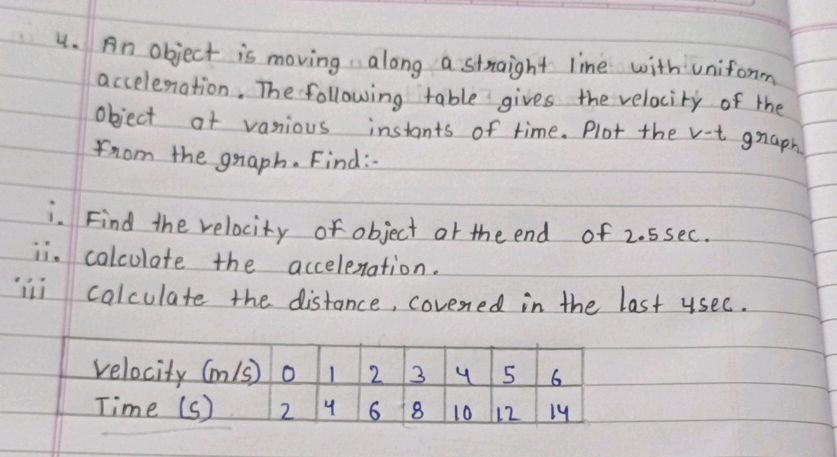 4. An object is moving along a straight line with uniform
acceleration. The following table gives the velocity of the
Object at various instants of time. Plot the v-t graph
From the graph. Find:-
i. Find the velocity of object at the end of 2.5 sec.
ii. calculate the acceleration.
iii calculate the distance, covered in the last 4sec.
Velocity (m/s) 0 1 2 3 4 5 6
Time (s) 2 4 6 8 10 12 14